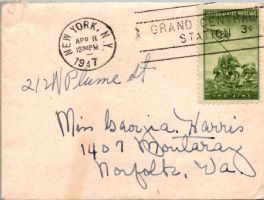 NEW YORK, N.Y.
APR 11
12 30 PM
1947
GRAND CENTRAL
STATION
UNITED STATES POSTAGE
3¢
212 W Plume st
Miss Georgia Harris
1407 Montaray
Norfolk, Va.